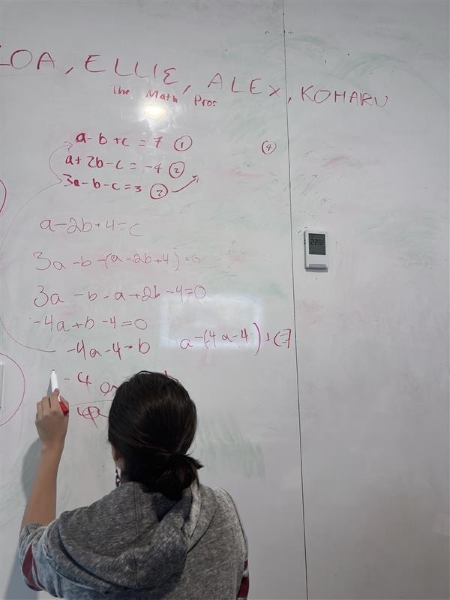 LOA, ELLIE, ALEX, KOHARU
The Math Pros
a-b+c=7 ①
a+2b-c=-4 ②
3a-b-c=3 ③
④
a-2b+4=c
3a-b-(a-2b+4)=0
3a-b-a+2b-4=0
-4a+b-4=0
-4a-4=b
a-(4a-4)+c=7
-4